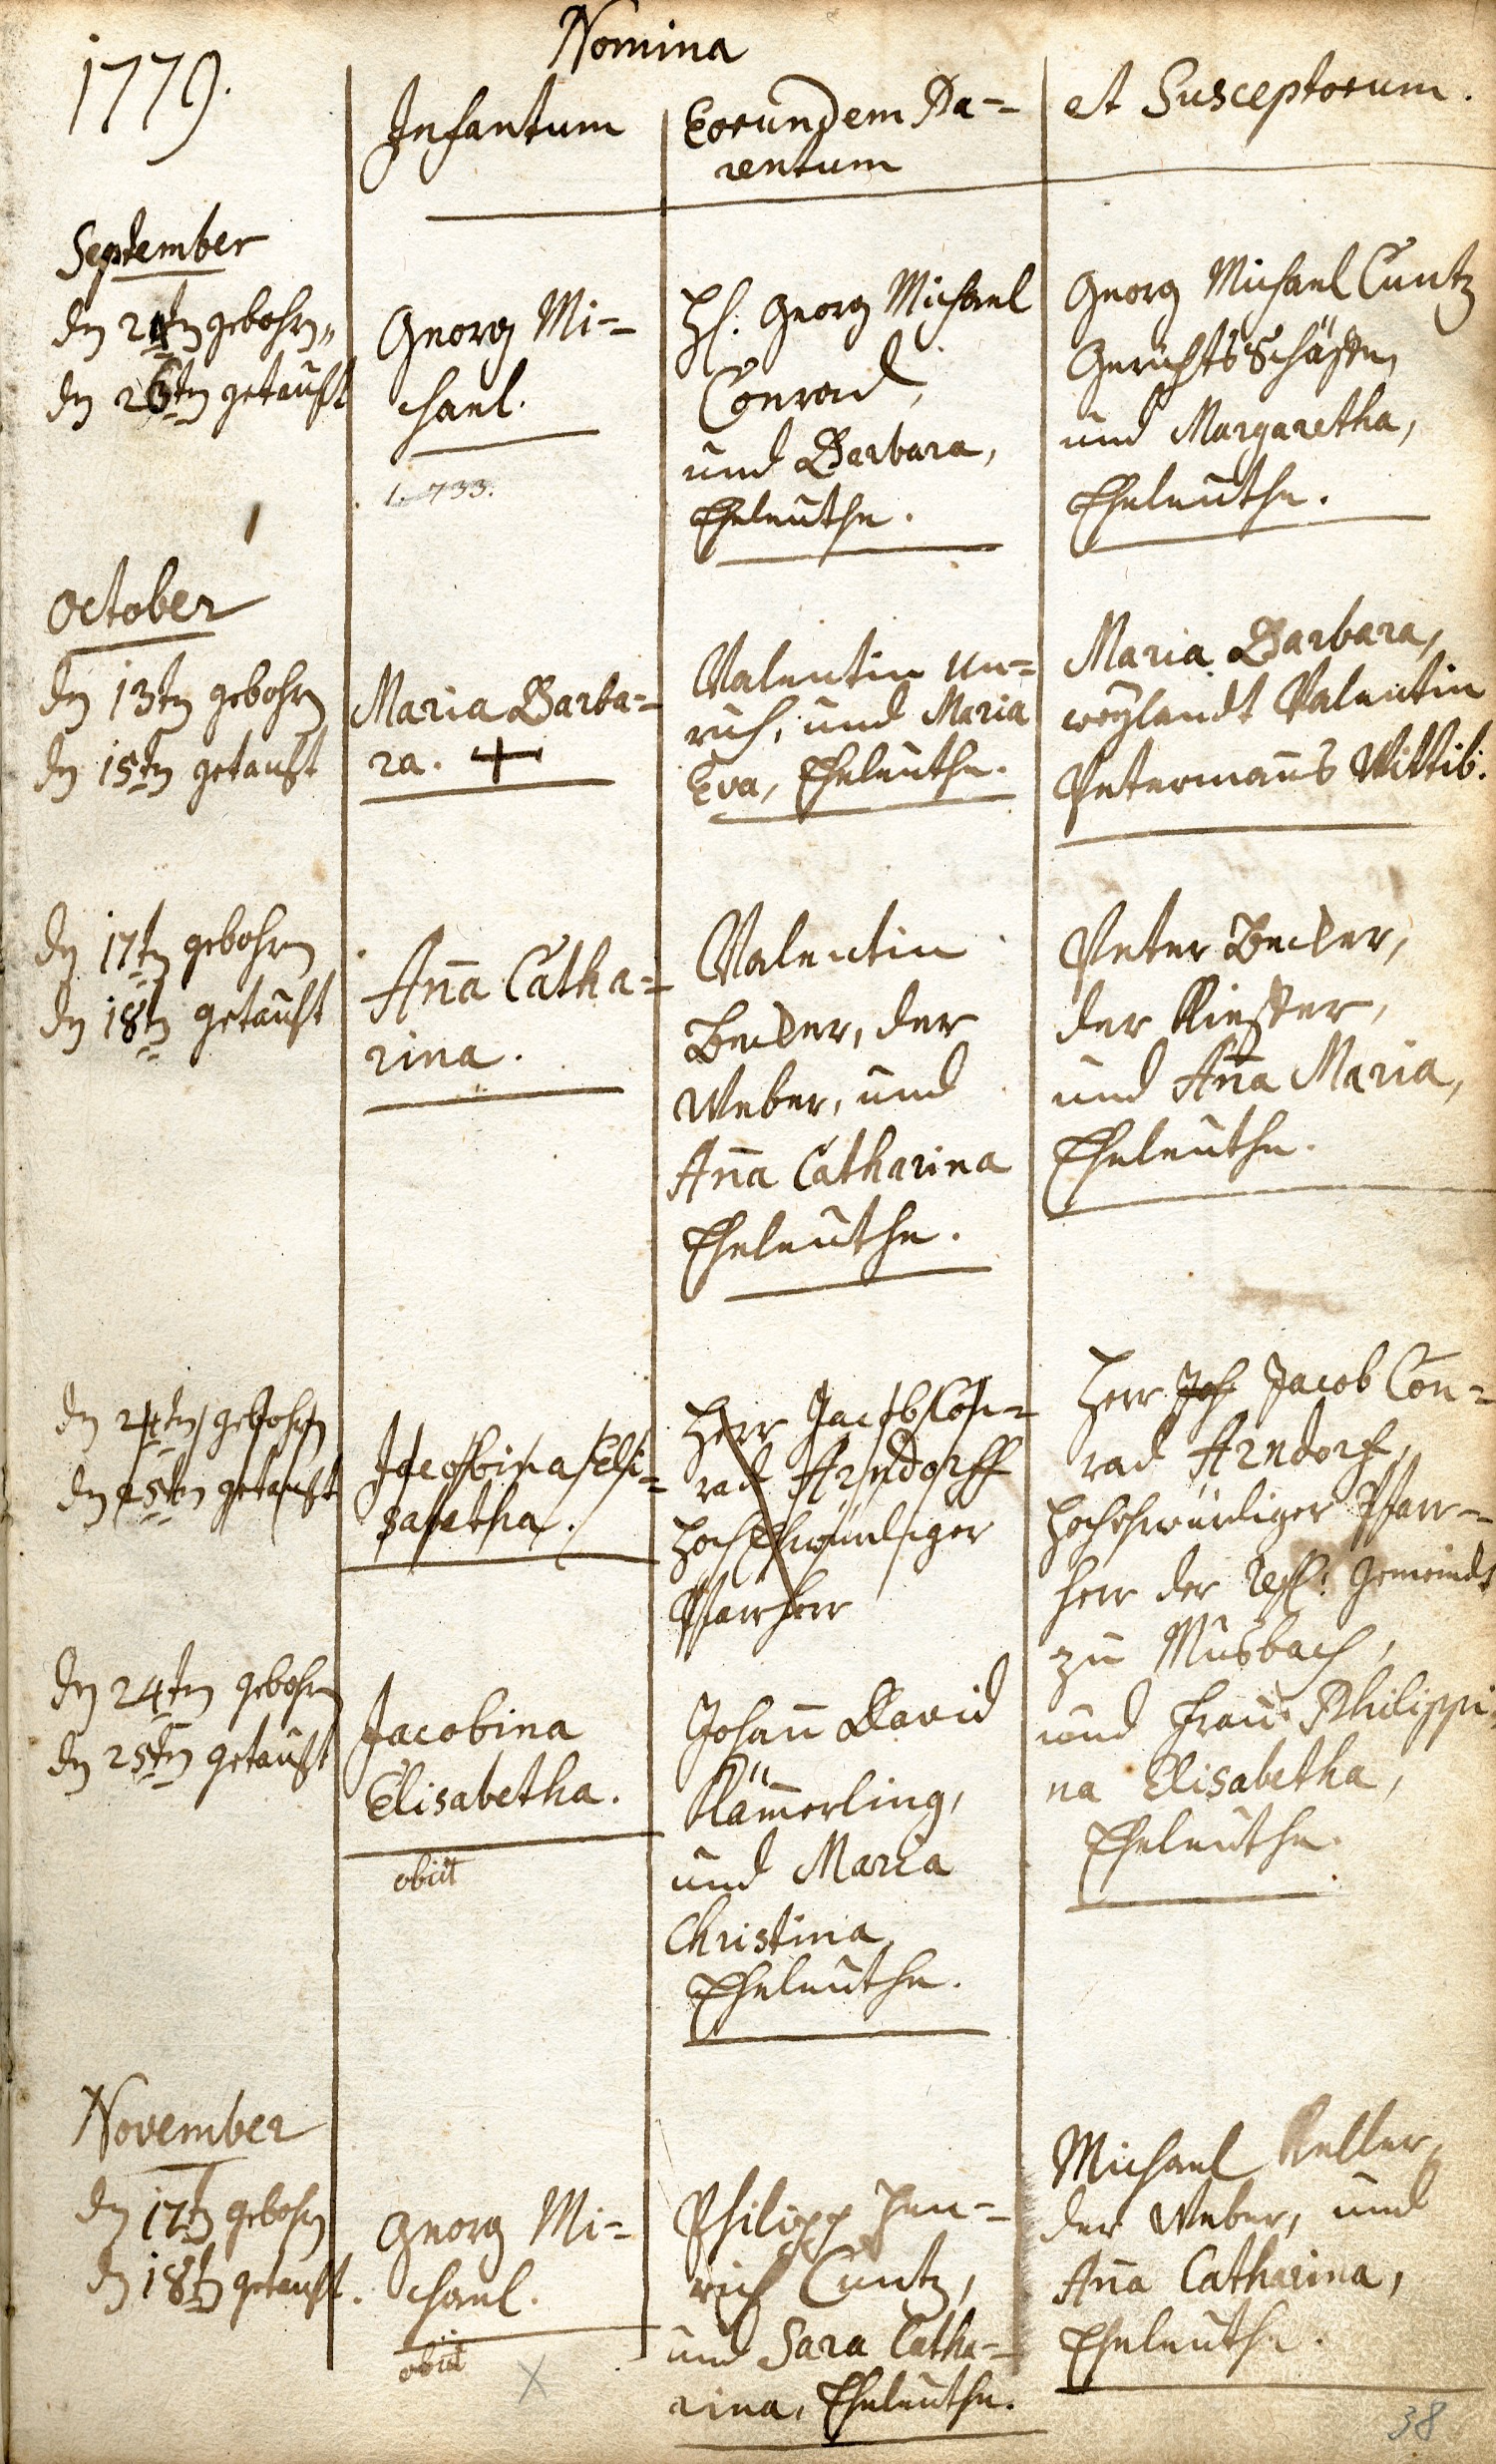 1779.
Nomina
Infantum
Eorundem Pa=
rentum
et Susceptorum.
September
den 24ten gebohren,
den 26ten getauft
Georg Mi=
chael.
1. 733.
H. Georg Michael
Conrad,
und Barbara,
Eheleuthe.
Georg Michael Cuntz
Gerichts Schäffen
und Margaretha,
Eheleuthe.
October
den 13ten gebohren
den 15ten getauft
Maria Barba=
ra. +
Valentin Un=
rich, und Maria
Eva, Eheleuthe.
Maria Barbara,
weylandt Valentin
Petermañs Wittib.
den 17ten gebohren
den 18ten getauft
Aña Catha=
rina.
Valentin
Becker, der
Weber, und
Aña Catharina
Eheleuthe.
Peter Becker,
der Küefer,
und Aña Maria,
Eheleuthe.
den 24ten gebohren
den 25ten getauft
Jacobina Eli=
sabetha.
Herr Jacob Con=
rad Arndorff
HochEhrwürdiger
Pfarrherr
Herr Joh Jacob Con=
rad Arndorf,
Hochehrwürdiger Pfarr=
herr der Ref: Gemeinde
zu Musbach,
und Frau Philippi=
na Elisabetha,
Eheleuthe.
den 24ten gebohren
den 25ten getauft
Jacobina
Elisabetha.
obiit
Johañ David
Käm̃erling,
und Maria
Christina,
Eheleuthe.
November
den 17ten gebohren
den 18ten getauft.
Georg Mi=
chael.
obiit X
Philipp Hen=
rich Cuntz,
und Sara Catha=
rina, Eheleuthe.
Michael Keller,
der Weber, und
Aña Catharina,
Eheleuthe.
38